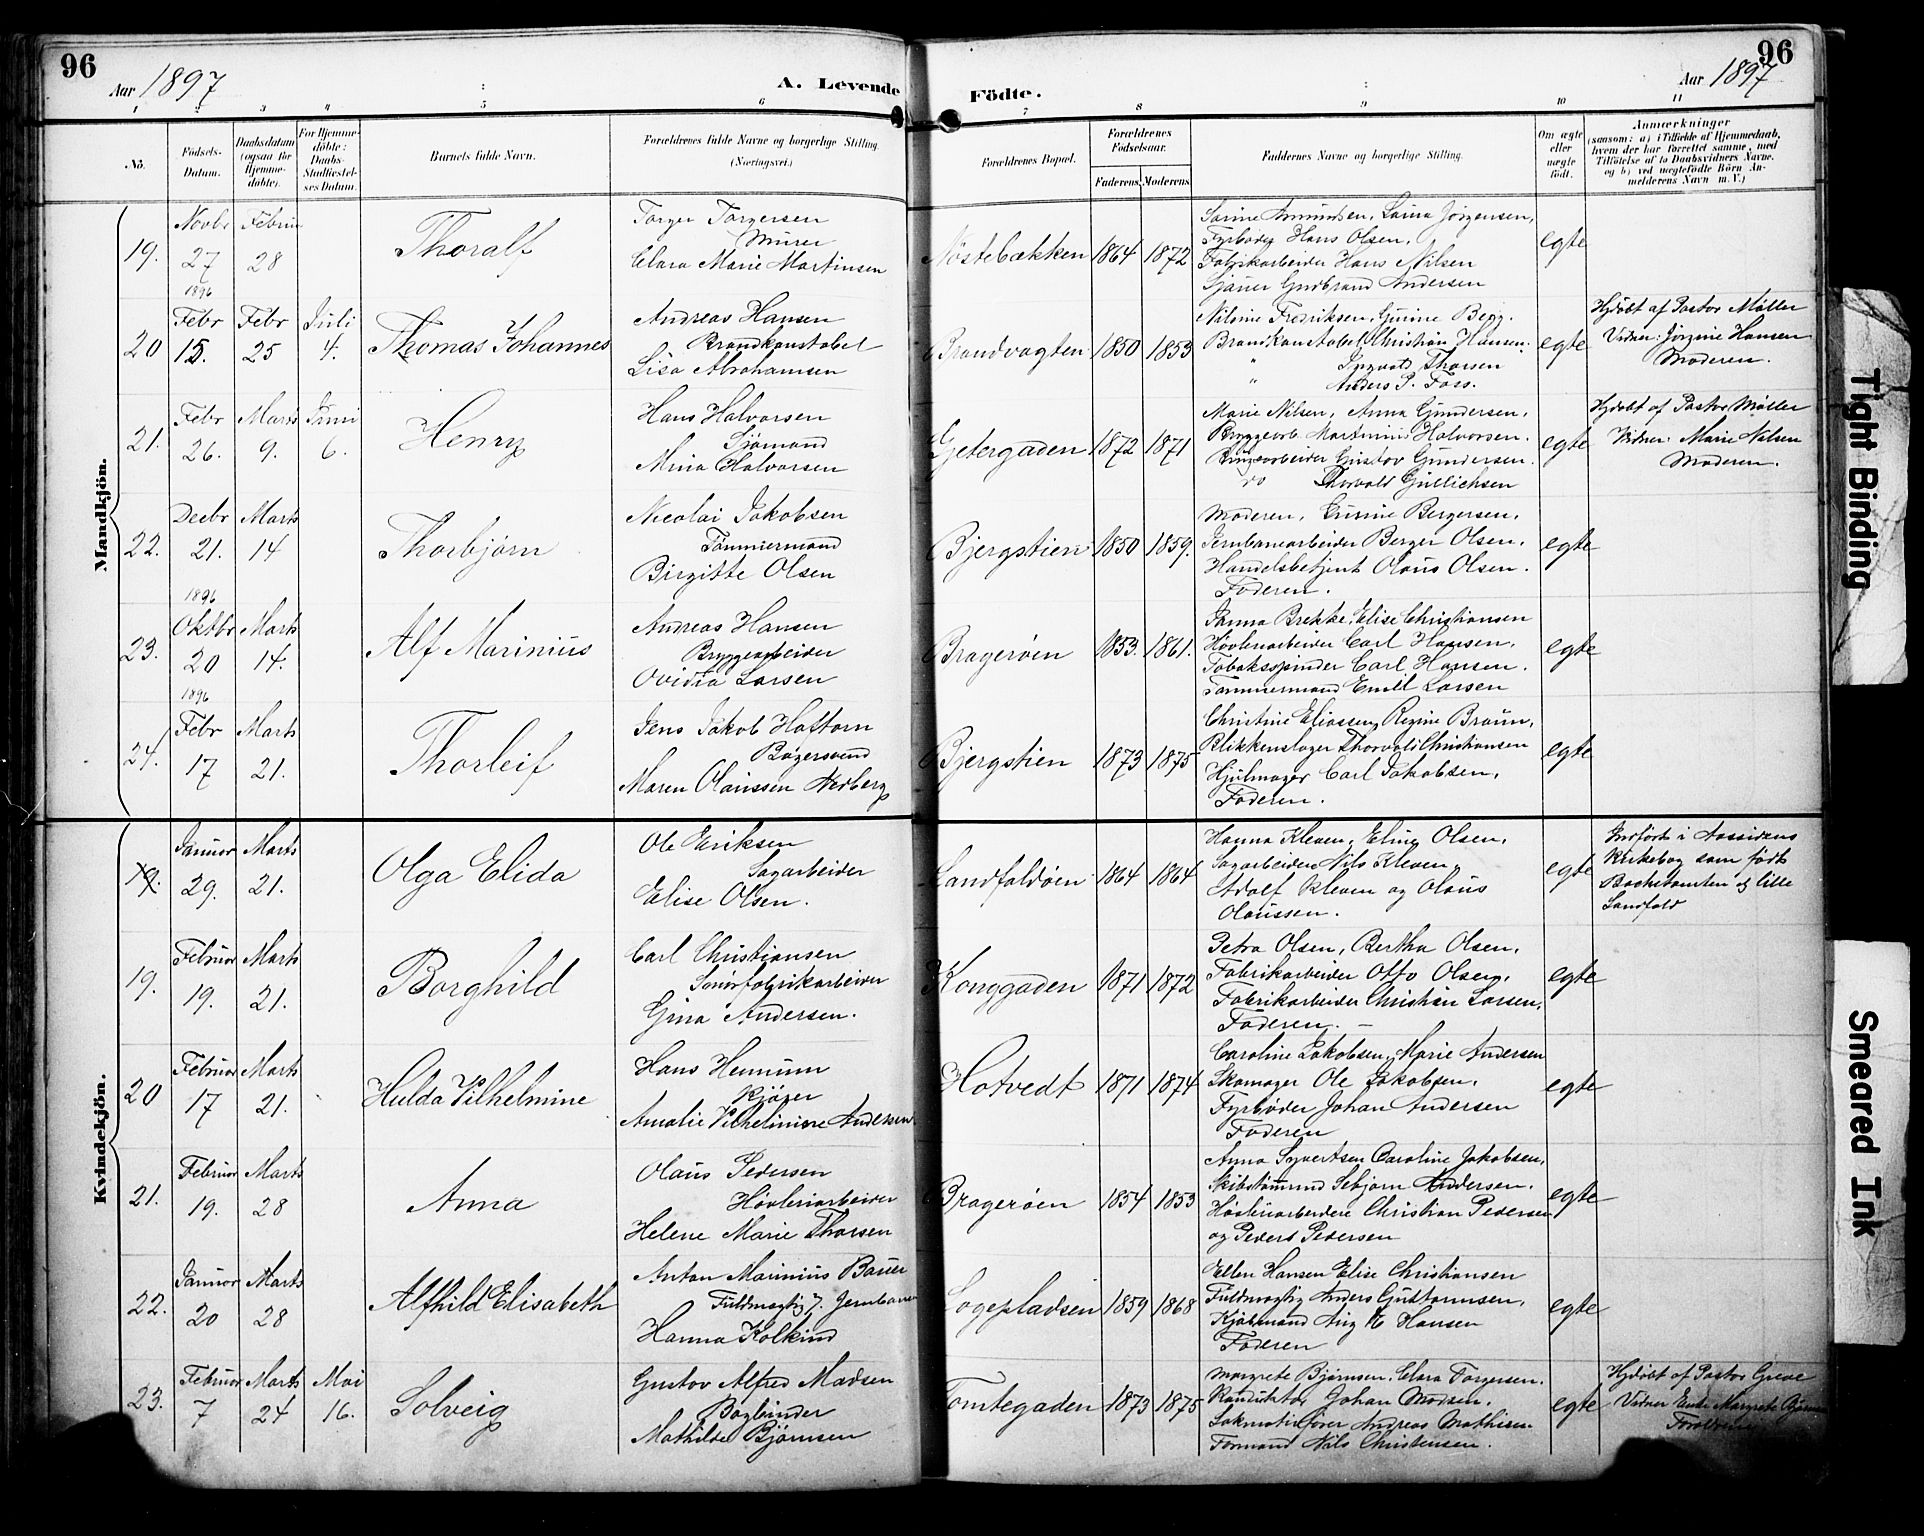 96
96
Aar 1897
A. Levende
Födte.
Aar 1897
1 2 3 4 5 6 7 8 9 10 11
No.
Födsels-Datum.
Daabsdatum (ogsaa for Hjemme-døbte).
For Hjemme-döbte: Daabs-Stadfæstel-ses Datum.
Barnets fulde Navn.
Forældrenes fulde Navne og borgerlige Stilling. (Næringsvei.)
Forældrenes Bopæl.
Forældrenes Födselsaar.
Faderens. Moderens.
Faddernes Navne og borgerlige Stilling.
Om ægte eller uægte födt.
Anmærkninger
(saasom: a) i Tilfælde af Hjemmedaab, hvem der har forrettet samme, med Tilføielse af to Daabsvidners Navne, og b) ved uægtefödte Börn An-melderens Navn m. V.)
Mandkjön.
19. Novbr 27 1896 Februar 28 Thoralf
Torger Torgersen
Murer
Clara Marie Martinsen
Nøstebækken 1864 1872
Sarine Amundsen, Laura Jörgensen,
Fyrbøder Hans Olsen,
Fabrikarbeider Hans Nilsen
Sjauer Gudbrand Andersen
egte
20 Febr 15. Febr 25 Juli 4. Thomas Johannes
Andreas Hansen
Brandkonstabel
Lisa Abrahamsen
Brandvagten 1850 1853
Nilsine Fredriksen, Gunine Berg.
Brandkonstabel Christian Hansen.
" Ingvald Thorsen
" Anders P. Foss.
egte
Hjdøbt af Pastor Møller
Vidner: Jørgine Hansen
Moderen.
21. Febr 26. Marts 9. Juni 6. Henry
Hans Halvorsen
Sjømand
Mina Halvorsen
Gjetergaden 1872 1871
Marie Nilsen, Anna Gundersen,
Bryggearb. Martinius Halvorsen.
Bruksarbeider Gustav Gundersen.
do Thorvald Gullichsen
egte
Hjdøbt af Pastor Møller
Vidner: Marie Nilsen
Moderen.
22. Decbr 21. 1896 Marts 14 Thorbjørn
Nicolai Jakobsen
Tømmermand
Birgitte Olsen
Bjergstien 1850 1859.
Moderen, Gusine Bergersen,
Jernbanearbeider Berger Olsen,
Handelsbetjent Olaus Olsen.
Faderen.
egte
23. Oktbr 20 1896 Marts 14. Alf Marinius
Andreas Hansen
Bryggearbeider
Ovidia Larsen
Bragerøen 1853. 1861.
Janna Brekke, Elise Christiansen
Høvleriarbeider Carl Hansen,
Tobakspinder Carl Hansen.
Tømmermand Emil Larsen
egte
24. Febr 17 Marts 21. Thorleif
Jens Jakob Haftorn
Bøgersvend
Maren Olaussen Herberg
Bjergstien 1873 1875
Christine Eliassen, Regine Braun,
Blikkenslager Thorvald Christiansen
Hjulmager Carl Jakobsen,
Faderen.
egte
Kvindekjön.
19. Januar 29. Marts 21. Olga Elida
Ole Eriksen
Sagarbeider
Elise Olsen.
Landfaldøen 1864 1864
Hanna Kleven, Eline Olsen,
Sagarbeidere Nils Kleven,
Adolf Kleven og Olaus
Olaussen.
egte
Indført i Aassidens
Kirkebog som født
Bachetomten og lille
Landfald
19. Februar 19. Marts 21. Borghild
Carl Christiansen
Snørfabrikarbeider
Gina Andersen.
Konggaden 1871 1872
Petra Olsen, Bertha Olsen,
Fabrikarbeider Otto Olsen,
Fabrikarbeider Christian Larsen,
Faderen.
egte
20 Februar 17 Marts 21. Hulda Vilhelmine
Hans Hemnum
Kjører
Amalie Vilhelmine Andersen
Hotvedt 1871 1874
Caroline Jakobsen, Marie Andersen
Skomager Ole Jakobsen,
Fyrbøder Johan Andersen
Faderen
egte
21. Februar 19. Marts 28 Anna
Olaus Pedersen
Høvleriarbeider
Helene Marie Thorsen
Bragerøen 1854 1853
Anna Syvertsen Caroline Jakobsen,
Skibstømmand Sebjørn Andersen,
Høvleriarbeidere Christian Pedersen
og Peders Pedersen
egte
22. Januar 20 Marts 28 Alfhild Elisabeth
Anton Marinius Bauer
Fuldmægtig v. Jernbanen
Hanna Kolkind
Logepladsen 1859 1868
Ellen Hansen Elise Christiansen
Fuldmægtig Anders Guttormsen,
Kjøbmand Aug E Hansen
Faderen
egte
23. Februar 7 Marts 24 Mai 16. Solveig
Gustav Alfred Madsen
Bogbinder
Mathilde Bjørnsen
Tomtegaden 1873 1875
Margrete Bjørnsen, Clara Torgersen,
Konduktør Johan Madsen,
Lokomotivfører Andreas Mathisen
Formand Nils Christensen.
egte
Hjdøbt af Pastor Greve
Vidner Margrete
Tight Binding
Smeared Ink